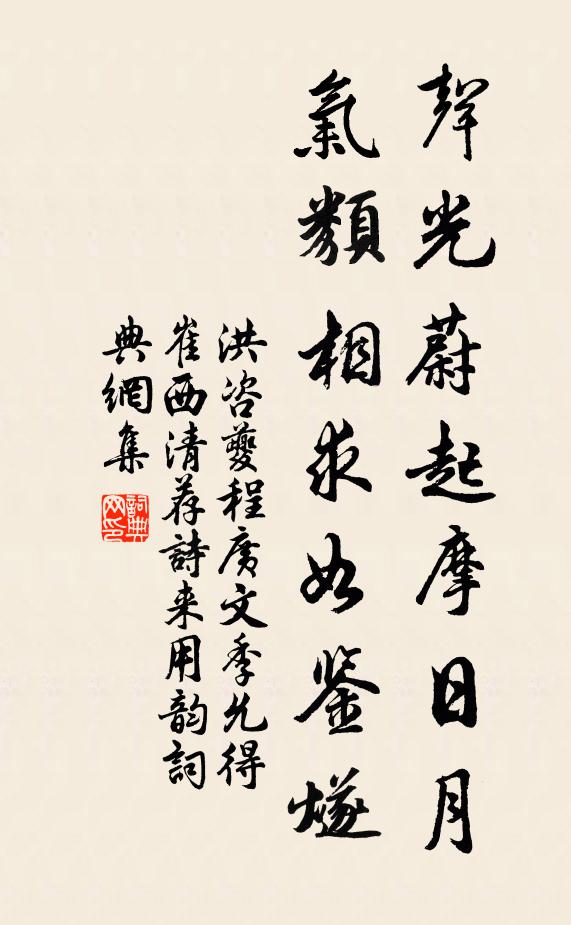 聲光蔚起摩日月
氣類相求如鑒燧
洪咨夔程廣文季允得
崔西清荐詩来用韵詞
典網集
詞典网印